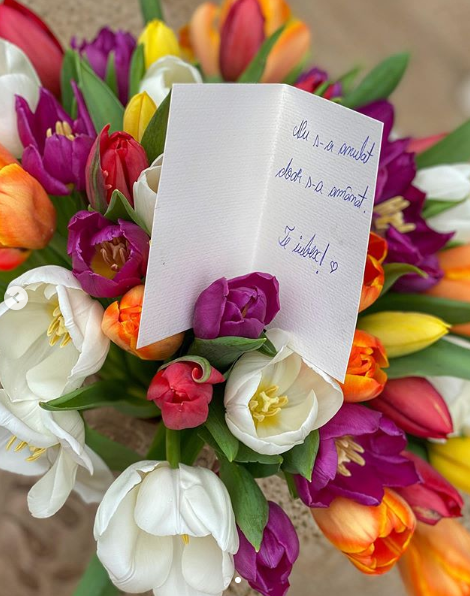 Nu s-a anulat
doar s-a amânat.
Te iubesc! ♡